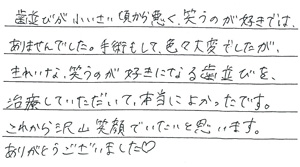 歯並びが小いさい頃から悪く、笑うのが好きでは、
ありませんでした。手術もして、色々大変でしたが、
きれいな、笑うのが好きになる歯並びを、
治療していただいて、本当によかったです。
これから沢山笑顔でいたいと思います。
ありがとうございました♡